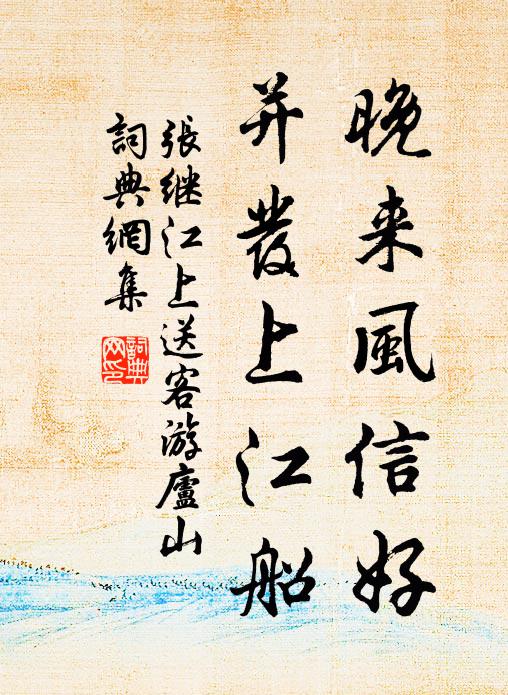 晚来風信好
并發上江船
張继江上送客游廬山
詞典網集
詞典網印